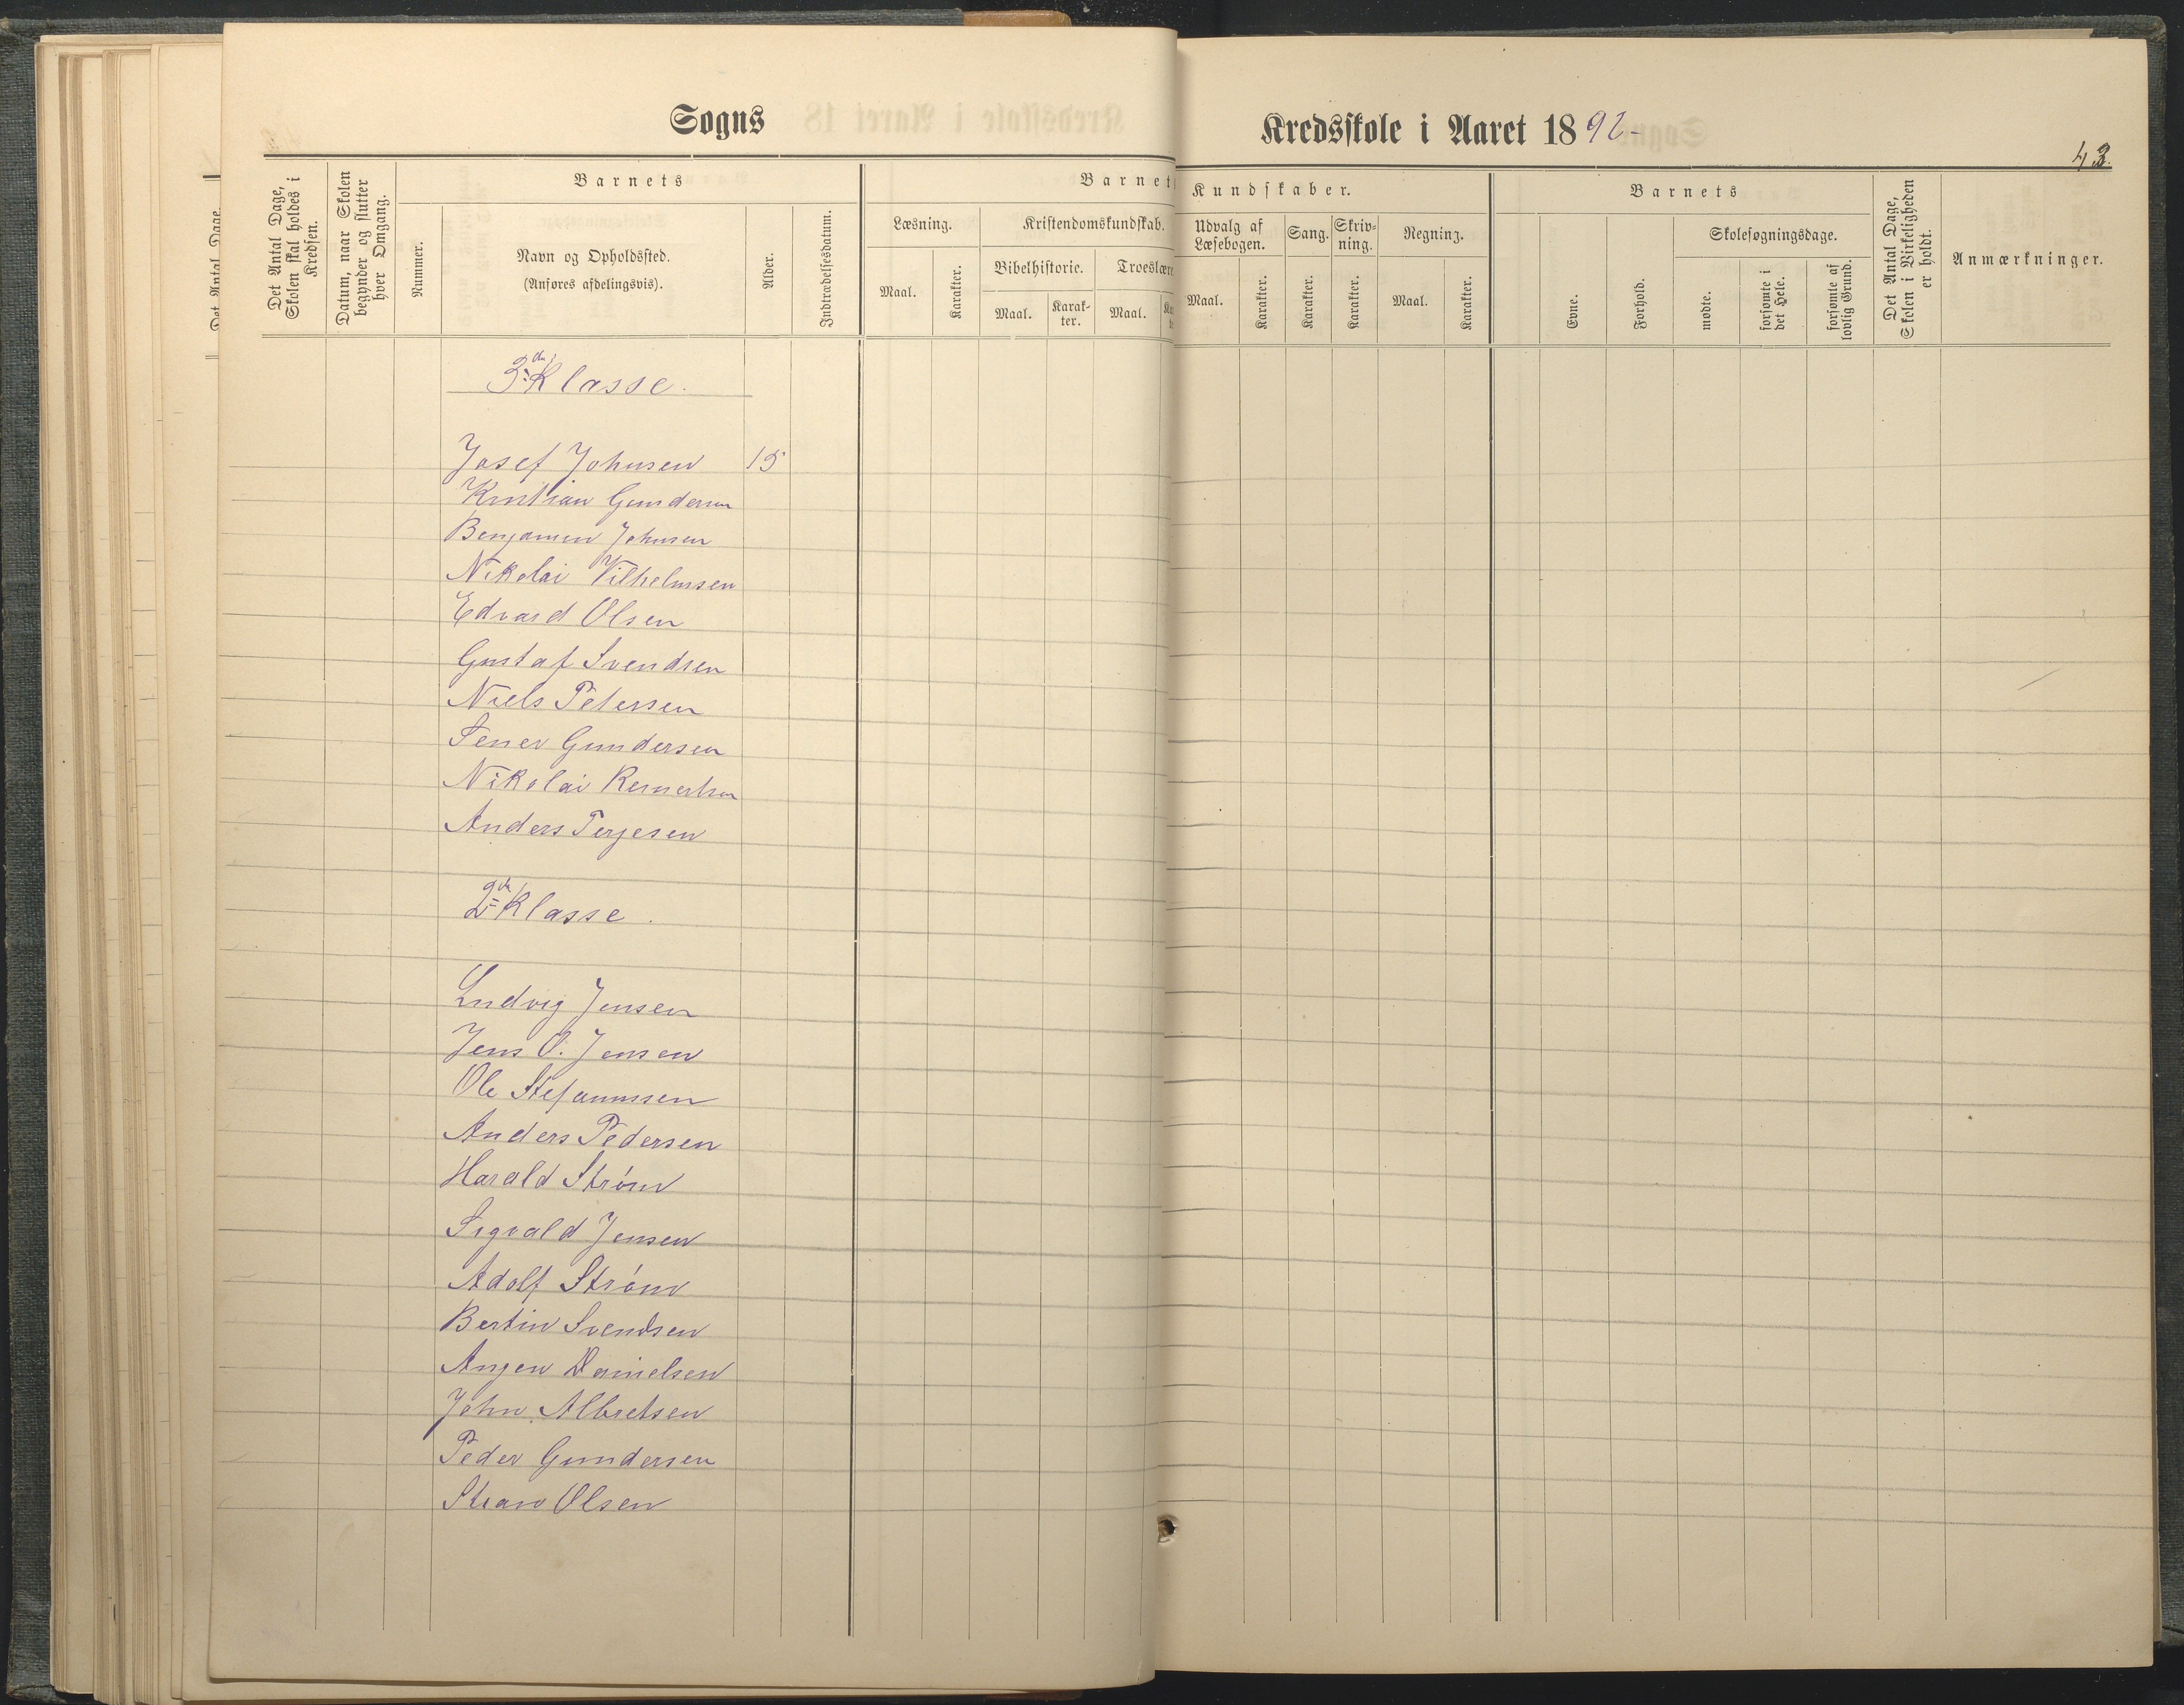 Sogns
Kredsskole i Aaret 1892-
43.
Det Antal Dage, Skolen skal holdes i Kredsen.
Datum, naar Skolen begynder og slutter hver Omgang.
Barnets
Nummer.
Navn og Opholdssted.
(Anføres afdelingsvis).
Alder.
Indtrædelsesdatum.
Barnets
Kundskaber.
Læsning.
Maal.
Karakter.
Kristendomskundskab.
Bibelhistorie.
Maal.
Karak-
ter.
Troeslære
Maal.
Udvalg af
Læsebogen.
Maal.
Karakter.
Sang.
Karakter.
Skriv-
ning.
Karakter.
Regning.
Maal.
Karakter.
Barnets
Evne.
Forhold.
Skolesøgningsdage.
mødte.
forsømte i det Hele.
forsømte af lovlig Grund.
Det Antal Dage, Skolen i Virkeligheden er holdt.
Anmærkninger.
3die Klasse.
Josef Johnsen 15
Kristian Gundersen
Benjamin Johnsen
Nikolai Vilhelmsen
Edvard Olsen
Gustaf Svendsen
Niels Petersen
Gundersen
Nikolai
Anders Terjesen
2den Klasse.
Ludvig Jensen
Jens O. Jensen
Ole Stefanussen
Anders Pedersen
Harald Strøm
Sigvald Jensen
Adolf Strøm
Bertin Svendsen
Danielsen
John Albretsen
Peder Gundersen
Olsen